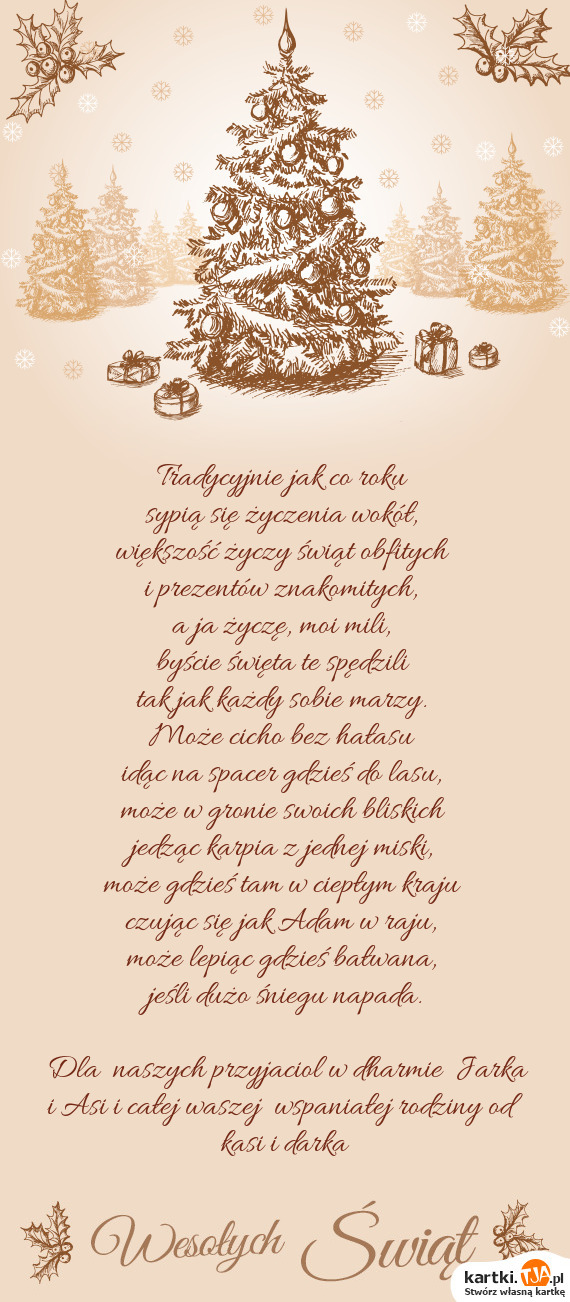 Tradycyjnie jak co roku
sypią się życzenia wokół,
większość życzy świąt obfitych
i prezentów znakomitych,
a ja życzę, moi mili,
byście święta te spędzili
tak jak każdy sobie marzy.
Może cicho bez hałasu
idąc na spacer gdzieś do lasu,
może w gronie swoich bliskich
jedząc karpia z jednej miski,
może gdzieś tam w ciepłym kraju
czując się jak Adam w raju,
może lepiąc gdzieś bałwana,
jeśli dużo śniegu napada.
Dla naszych przyjaciol w dharmie Jarka
i Asi i całej waszej wspaniałej rodziny od
kasi i darka
Wesołych Świąt
kartki.TJA.pl
Stwórz własną kartkę